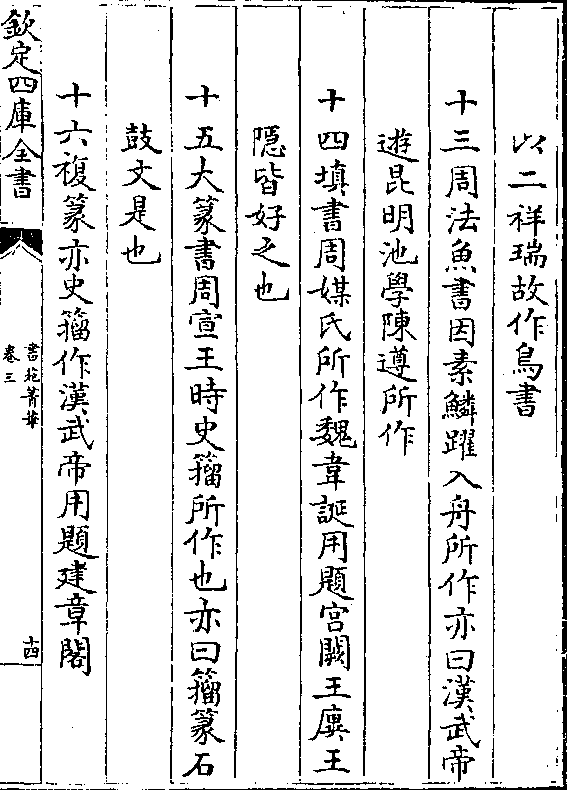 以二祥瑞故作鳥書
十三周法魚書因素鱗躍入舟所作亦曰漢武帝
遊昆明池學陳遵所作
十四填書周媒氏所作魏韋誕用題宫闕王廙王
隱皆好之也
十五大篆書周宣王時史籀所作也亦曰籀篆石
鼓文是也
十六複篆亦史籀作漢武帝用題建章閣
欽定四庫全書
書苑菁華
卷三
十四